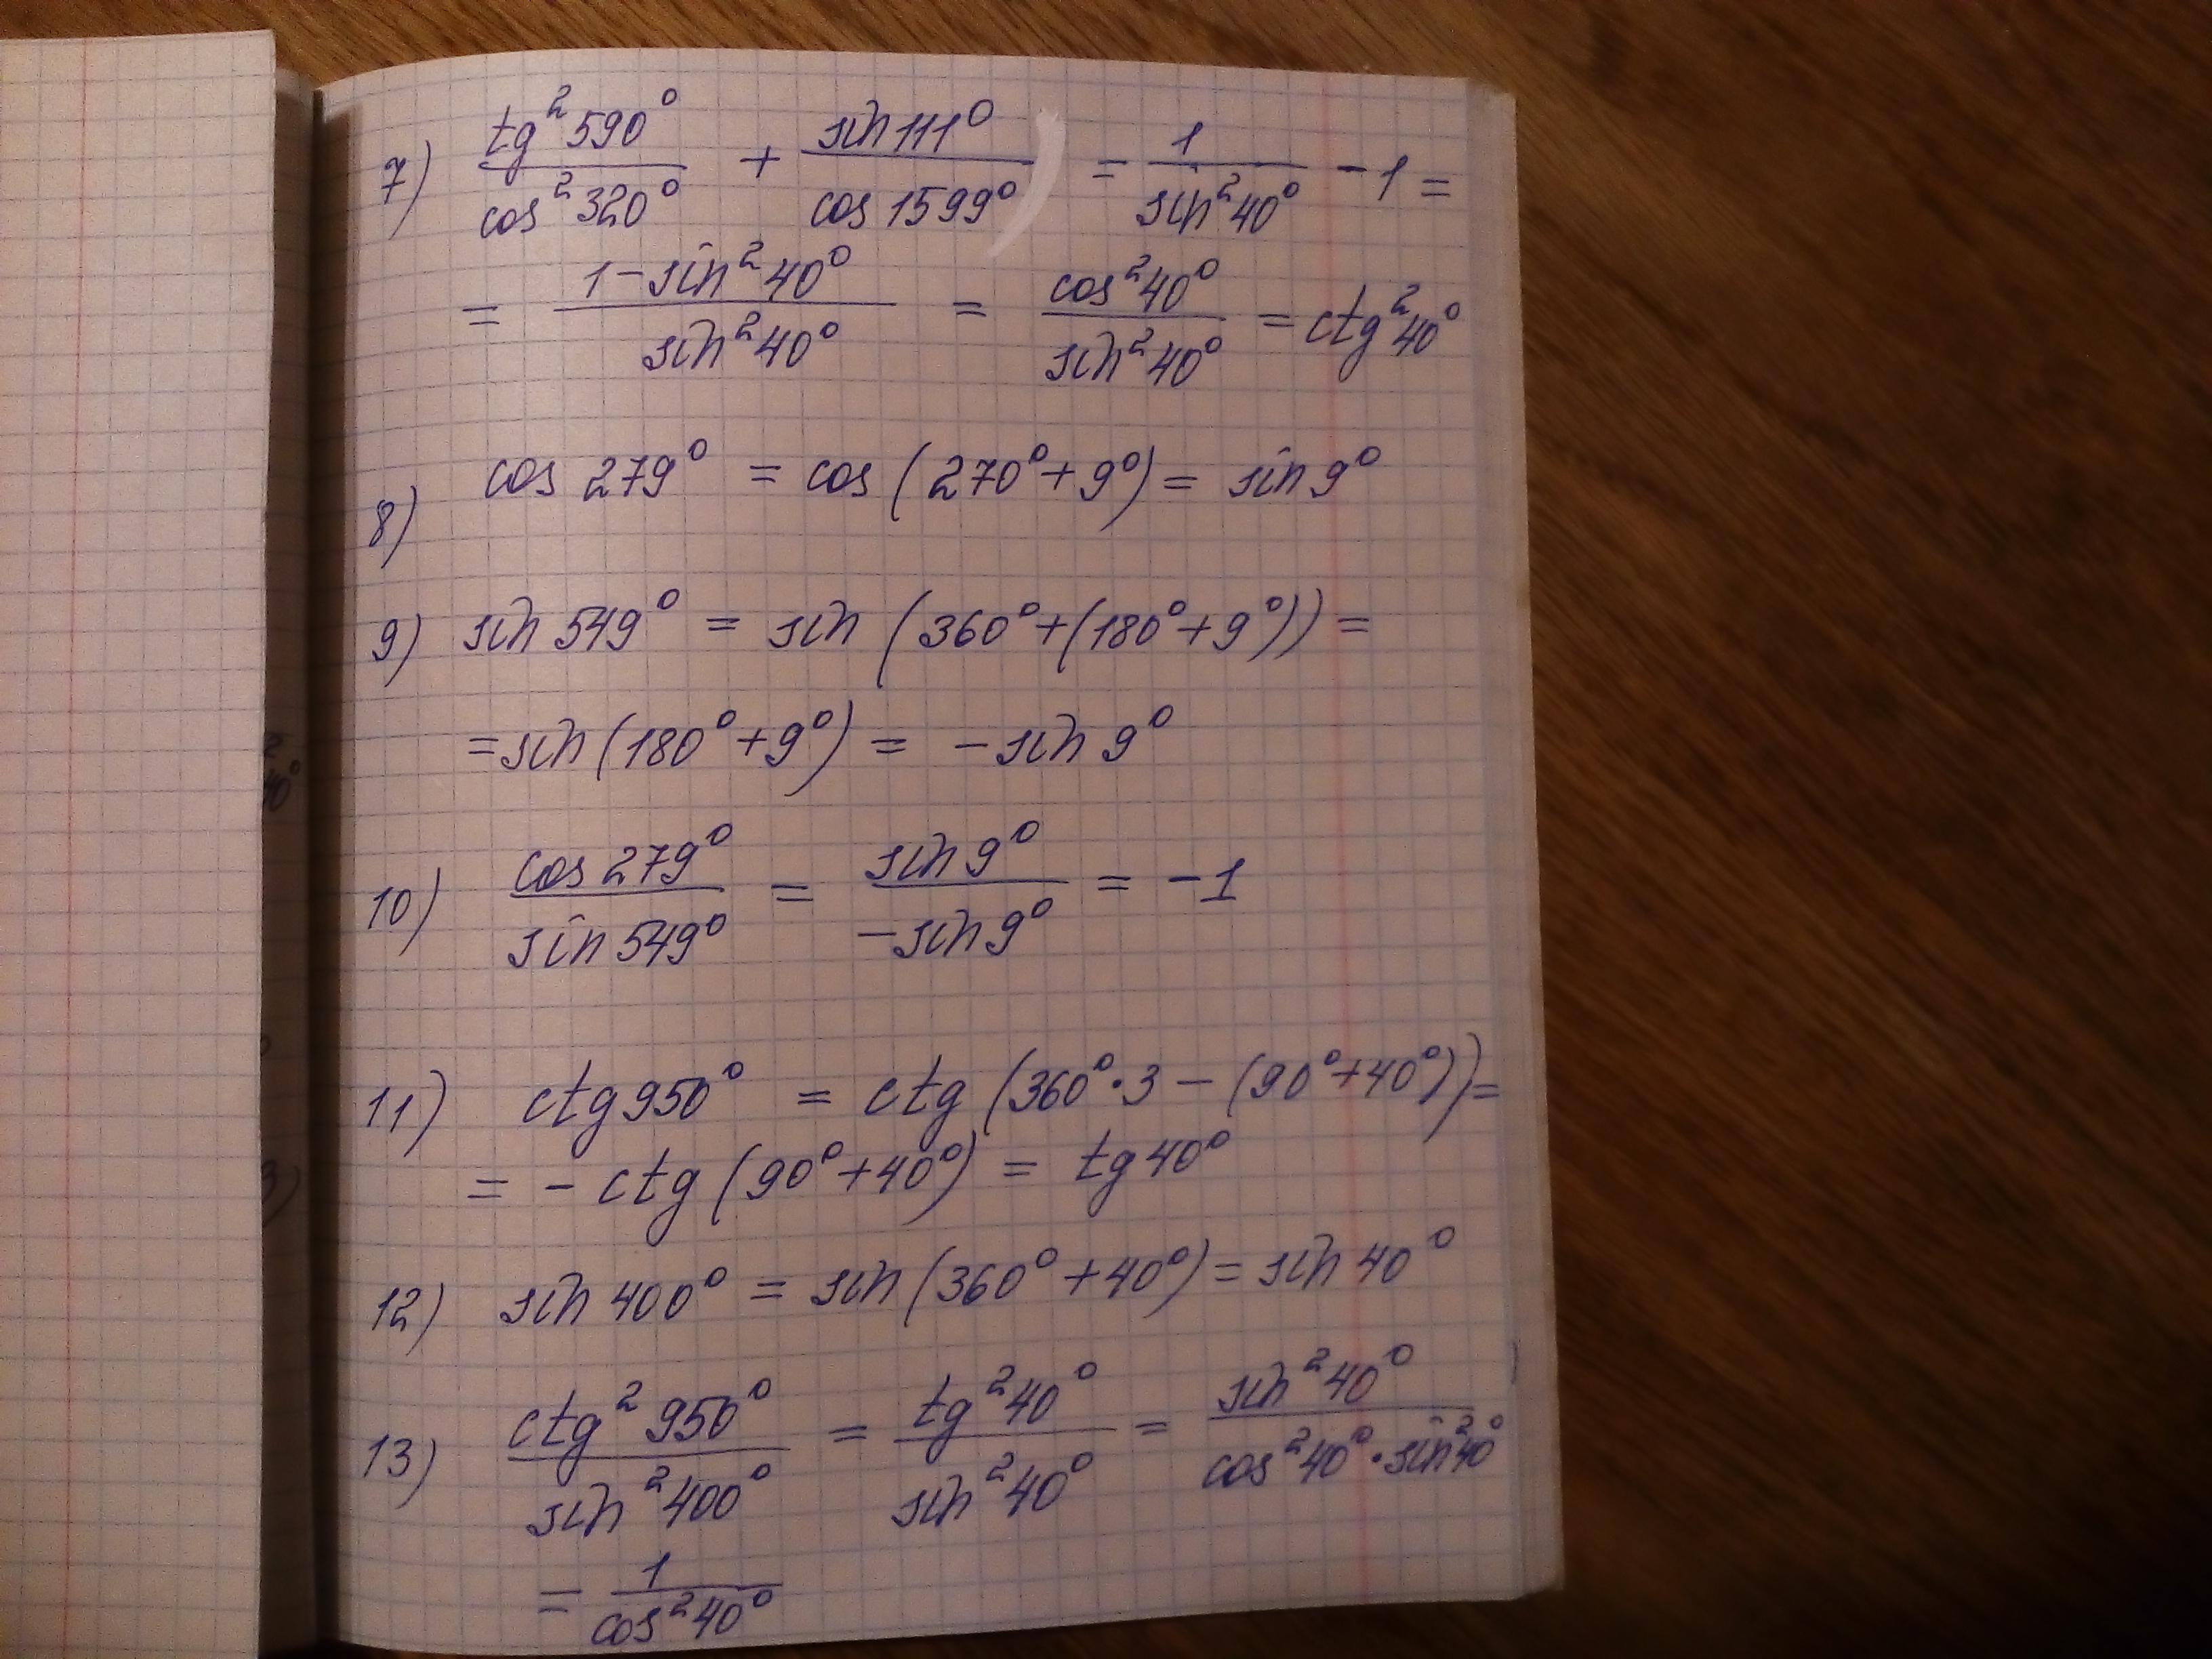 7) tg²590° / cos²320° + sin111° / cos1599° = 1 / sin²40° - 1 =
= 1-sin²40° / sin²40° = cos²40° / sin²40° = ctg²40°
8) cos 279° = cos (270°+9°) = sin 9°
9) sin 549° = sin (360°+(180°+9°)) =
= sin (180°+9°) = - sin 9°
10) cos 279° / sin 549° = sin 9° / -sin 9° = -1
11) ctg 950° = ctg (360°·3 - (90°+40°)) =
= - ctg (90°+40°) = tg 40°
12) sin 400° = sin (360°+40°) = sin 40°
13) ctg² 950° / sin² 400° = tg² 40° / sin² 40° = sin² 40° / cos² 40° · sin² 40°
= 1 / cos² 40°